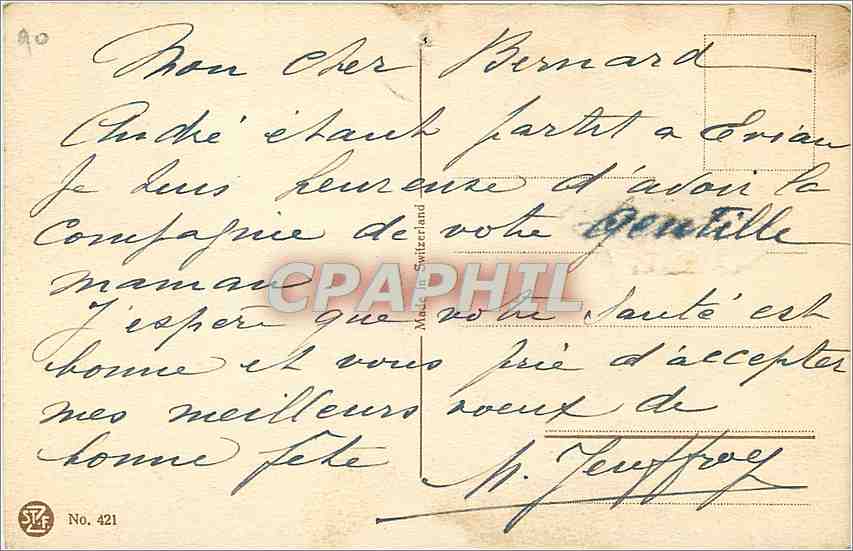 90
Mon cher Bernard
André étant partit a Evian
Je suis heureuse d'avoir la
compagnie de votre gentille
maman.
J'espère que votre santé est
bonne et vous prie d'accepter
mes meilleurs voeux de
bonne fête
M. Jeuffroy
Made in Switzerland
CPAPHIL
No. 421